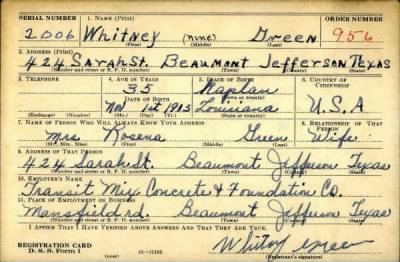 SERIAL NUMBER 1. NAME (Print) ORDER NUMBER
2006 Whitney (none) Green 956
(First) (Middle) (Last)
2. ADDRESS (Print)
424 Sarah St. Beaumont Jefferson Texas
(Number and street or R. F. D. number) (Town) (County) (State)
3. TELEPHONE 4. AGE IN YEARS 5. PLACE OF BIRTH 6. COUNTRY OF CITIZENSHIP
35 Kaplan
DATE OF BIRTH (Town or county)
Nov 1st 1905 Louisiana U.S.A
(Exchange) (Number) (Mo.) (Day) (Yr.) (State or country)
7. NAME OF PERSON WHO WILL ALWAYS KNOW YOUR ADDRESS 8. RELATIONSHIP OF THAT PERSON
Mrs Rosena Green Wife
(Mr., Mrs., Miss) (First) (Middle) (Last)
9. ADDRESS OF THAT PERSON
424 Sarah St. Beaumont Jefferson Texas
(Number and street or R. F. D. number) (Town) (County) (State)
10. EMPLOYER'S NAME
Transit Mix Concrete & Foundation Co.
11. PLACE OF EMPLOYMENT OR BUSINESS
Mansfield rd. Beaumont Jefferson Texas
(Number and street or R. F. D. number) (Town) (County) (State)
I AFFIRM THAT I HAVE VERIFIED ABOVE ANSWERS AND THAT THEY ARE TRUE.
REGISTRATION CARD
D. S. S. Form 1 Whitney Green
(Registrant's signature)